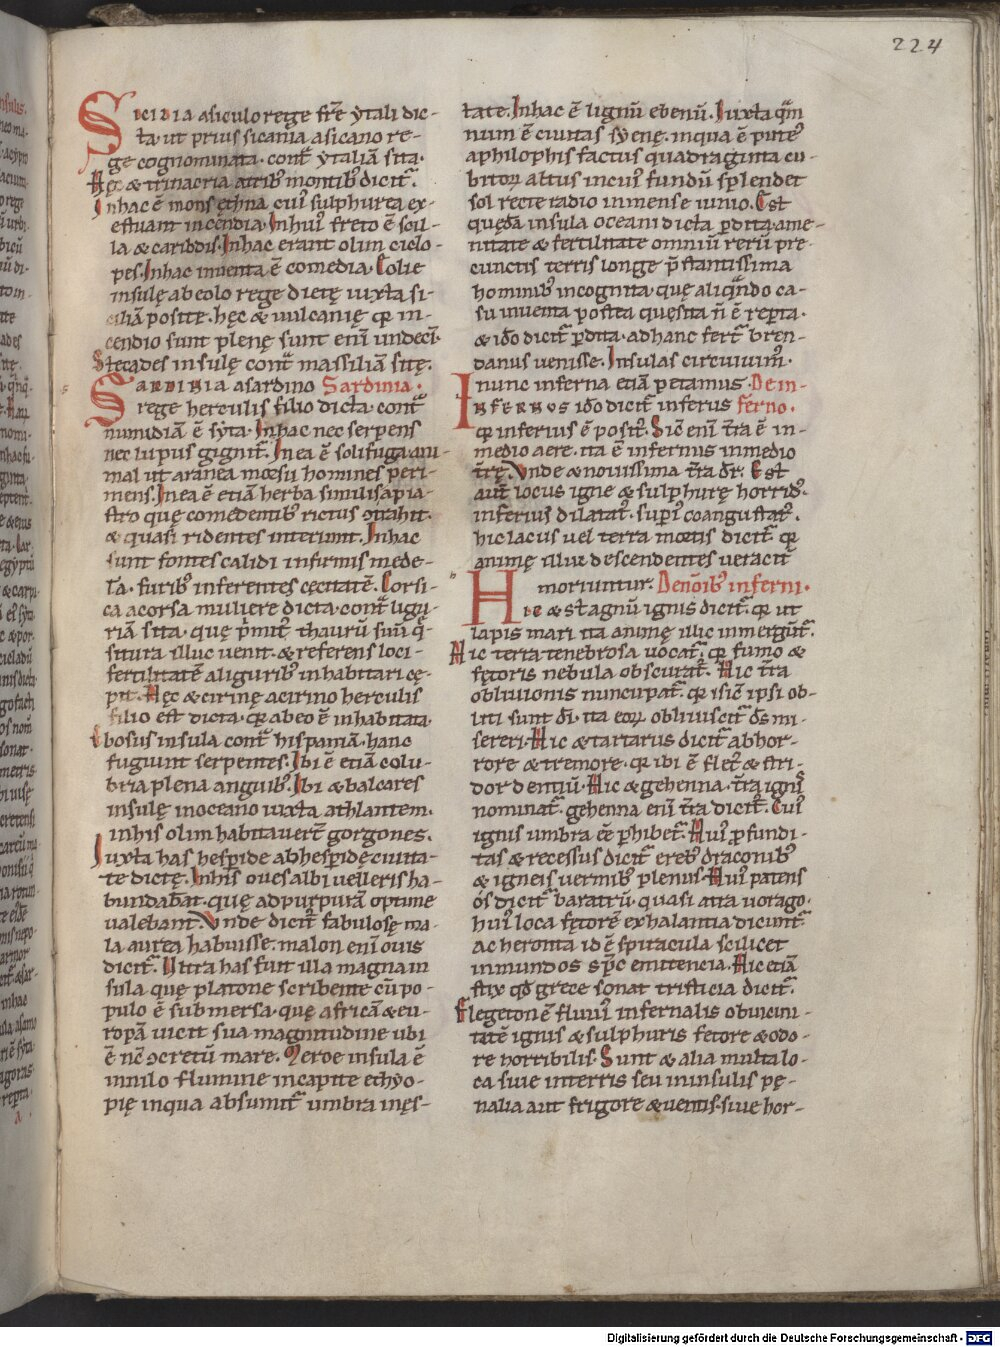 224
SICILIA asiculo rege frē ẏtali dic-
ta. ut prius sicania asicano re-
ge cognominata. cont̄ ẏtaliā sita.
Hęc & trinacria atrib; montib; dicit̄.
Inhac ē mons ethna cui' sulphurea ex-
estuant incendia. Inhui' freto ē scil-
la & caribdis. Inhac erant olim ciclo-
pes. Inhac inuenta ē comedia. Eolie
insulę ab eolo rege dictę iuxta si-
ciliā posite. hęc & uulcanię. qr in-
cendio sunt plenę sunt eni undeci.
Stecades insulę cont̄ massiliā sitę.
SARDINIA asardino Sardinia.
rege herculis filio dicta. cont̄
numidiā ē sẏta. Inhac nec serpens
nec lupus gignit̄. In ea ē solifuga. ani-
mal ut aranea morsu homines peri-
mens. In ea ē etiā herba similis apia-
stro quę comedentib; rictus otrahit.
& quasi ridentes interimit. Inhac
sunt fontes calidi infirmis mede-
la. furib; inferentes cęcitatē. Corsi-
ca acorsa muliere dicta. cont̄ ligu-
riā sita. que p̄mit' thaurū suū q̄-
situra illuc uenit. & referens loci
fertilitatē aliqurib; inhabitari cę-
pit. Hęc & cirinę acirino herculis
filio est dicta. qr abeo ē inhabitata.
Ebosus insula cont̄ hispaniā. hanc
fugiunt serpentes. Ibi ē etiā colu-
bria plena anguib;. Ibi & baleares
insulę inoceano iuxta athlantem.
inhis olim habitauert̄ gorgones.
Iuxta has hesperide abhesperidę ciuita-
te dictę. Inhis oues albi uelleris ha-
bundabat. quę adpurpurā optime
ualebant. Vnde dicit̄ fabulosę ma-
la aurea habuisse. malon eni ouis
dicit̄. Vltra has fuit illa magna in
sula quę platone scribente cū po-
pulo ē submersa. quę africā & eu-
ropā uicit sua magnitudine ubi
ē nc̄ ɔcretū mare. Meroe insula ē
innilo flumine incapite ethyo-
pię inqua absumit̄ umbra inęs-
tate. Inhac ē lignū ebenū. Iuxta q̄m
num ē ciuitas sẏenę. inqua ē pute'
aphilophis factus quadraginta cu-
bitor altus incui' fundū splendet
sol recte radio inmense iunio. Est
quędā insula oceani dicta p̄dita. ame-
nitate & fertilitate omniū rerū pre
cunctis terris longe p̄stantissima
hominib; incognita. quę aliqn̄do ca-
su inuenta postea quęsita n̄ ē reperta.
& iđo dicit̄ p̄dita. adhanc fert̄ bren-
danus uenisse. Insulas circuiuim'.
Inunc inferna etiā petamus. De in-
NFERNUS iđo dicit̄ inferus ferno.
qr inferius ē posit'. Sic eni t̄ra ē in-
medio aere. ita ē infernus inmedio
t̄rę. Vnde & nouissima t̄ra dr̄. Est
aut̄ locus igne & sulphurę horrid'.
inferius dilatat'. superi' coangustat'.
hic lacus uel terra mortis dicit̄. qr
animę illuc descendentes ueracit̄
moriuntur. De nōib; inferni.
HIC & stagnū ignis dicit̄. qr ut
lapis mari ita animę illic inmergūt̄.
Hic terra tenebrosa uocat̄. qr fumo &
fętoris nebula obscurat̄. Hic t̄ra
obliuionis nuncupat̄. qr isic ipsi ob-
liti sunt đi. ita eor obliuiscit̄ đs mi-
sereri. Hic & tartarus dicit̄ abhor-
rore & tremore. qr ibi ē flet' & stri-
dor dentiū. Hic & gehenna. t̄ra ignis
nominat̄. gehenna eni t̄ra dicit̄. Cui'
ignis umbra eē p̄hibet̄. Hui' profundi-
tas & recessus dicit̄ ereb; draconib;
& igneis uermib; plenus. Hui' patens
ós dicit̄ baratrū. quasi atra uorago.
hui' loca fętorē exhalantia dicunt̄
acheronta id ē spiracula scilicet
inmundos spc̄ emitencia. Hic etiā
stix qđ grece sonat tristicia dicit̄.
Flegeton ē fluui' infernalis obuicini-
tatē ignis & sulphuris fetore & odo-
re horribilis. Sunt & alia multa lo-
ca siue interris seu ininsulis pę-
nalia aut frigore & uentis. siue hor-
Digitalisierung gefördert durch die Deutsche Forschungsgemeinschaft - DFG